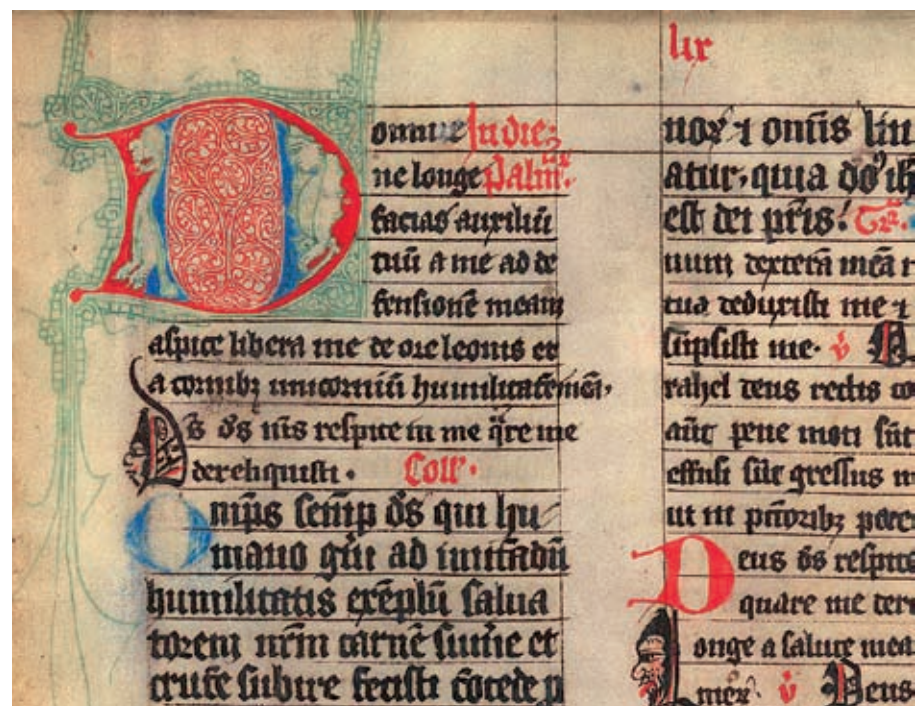 Domine In die
ne longe Palm̄.
facias auxiliū
tuū a me ad de
fensionē meam
aspice libera me de ore leonis et
a cornibꝫ unicorniū humilitatē meā.
Ds̄ ds̄ ms̄ respice in me q̄re me
dereliquisti. Coll'.
Omp̄s semp̄ ds̄ qui hu
mano gn̄i ad imitādū
humilitatis exēplū salua
torem nr̄m carnē sum̄e et
crucē subire fecisti cōcede p
lix
uoꝝ ⁊ om̄is lin
atur, quia ih
est dei pr̄is! Gr̄.
uum dexterā meā
tua deduxisti me ⁊
sūpsisti me. v̄
rahel deus rectis co
aūt pene moti sūt
effusi sūt gressus m
ut in pcc̄oribꝫ
Deus ds̄ respice
quare me dere
longe a salute mea
meoꝝ v̄ Deus